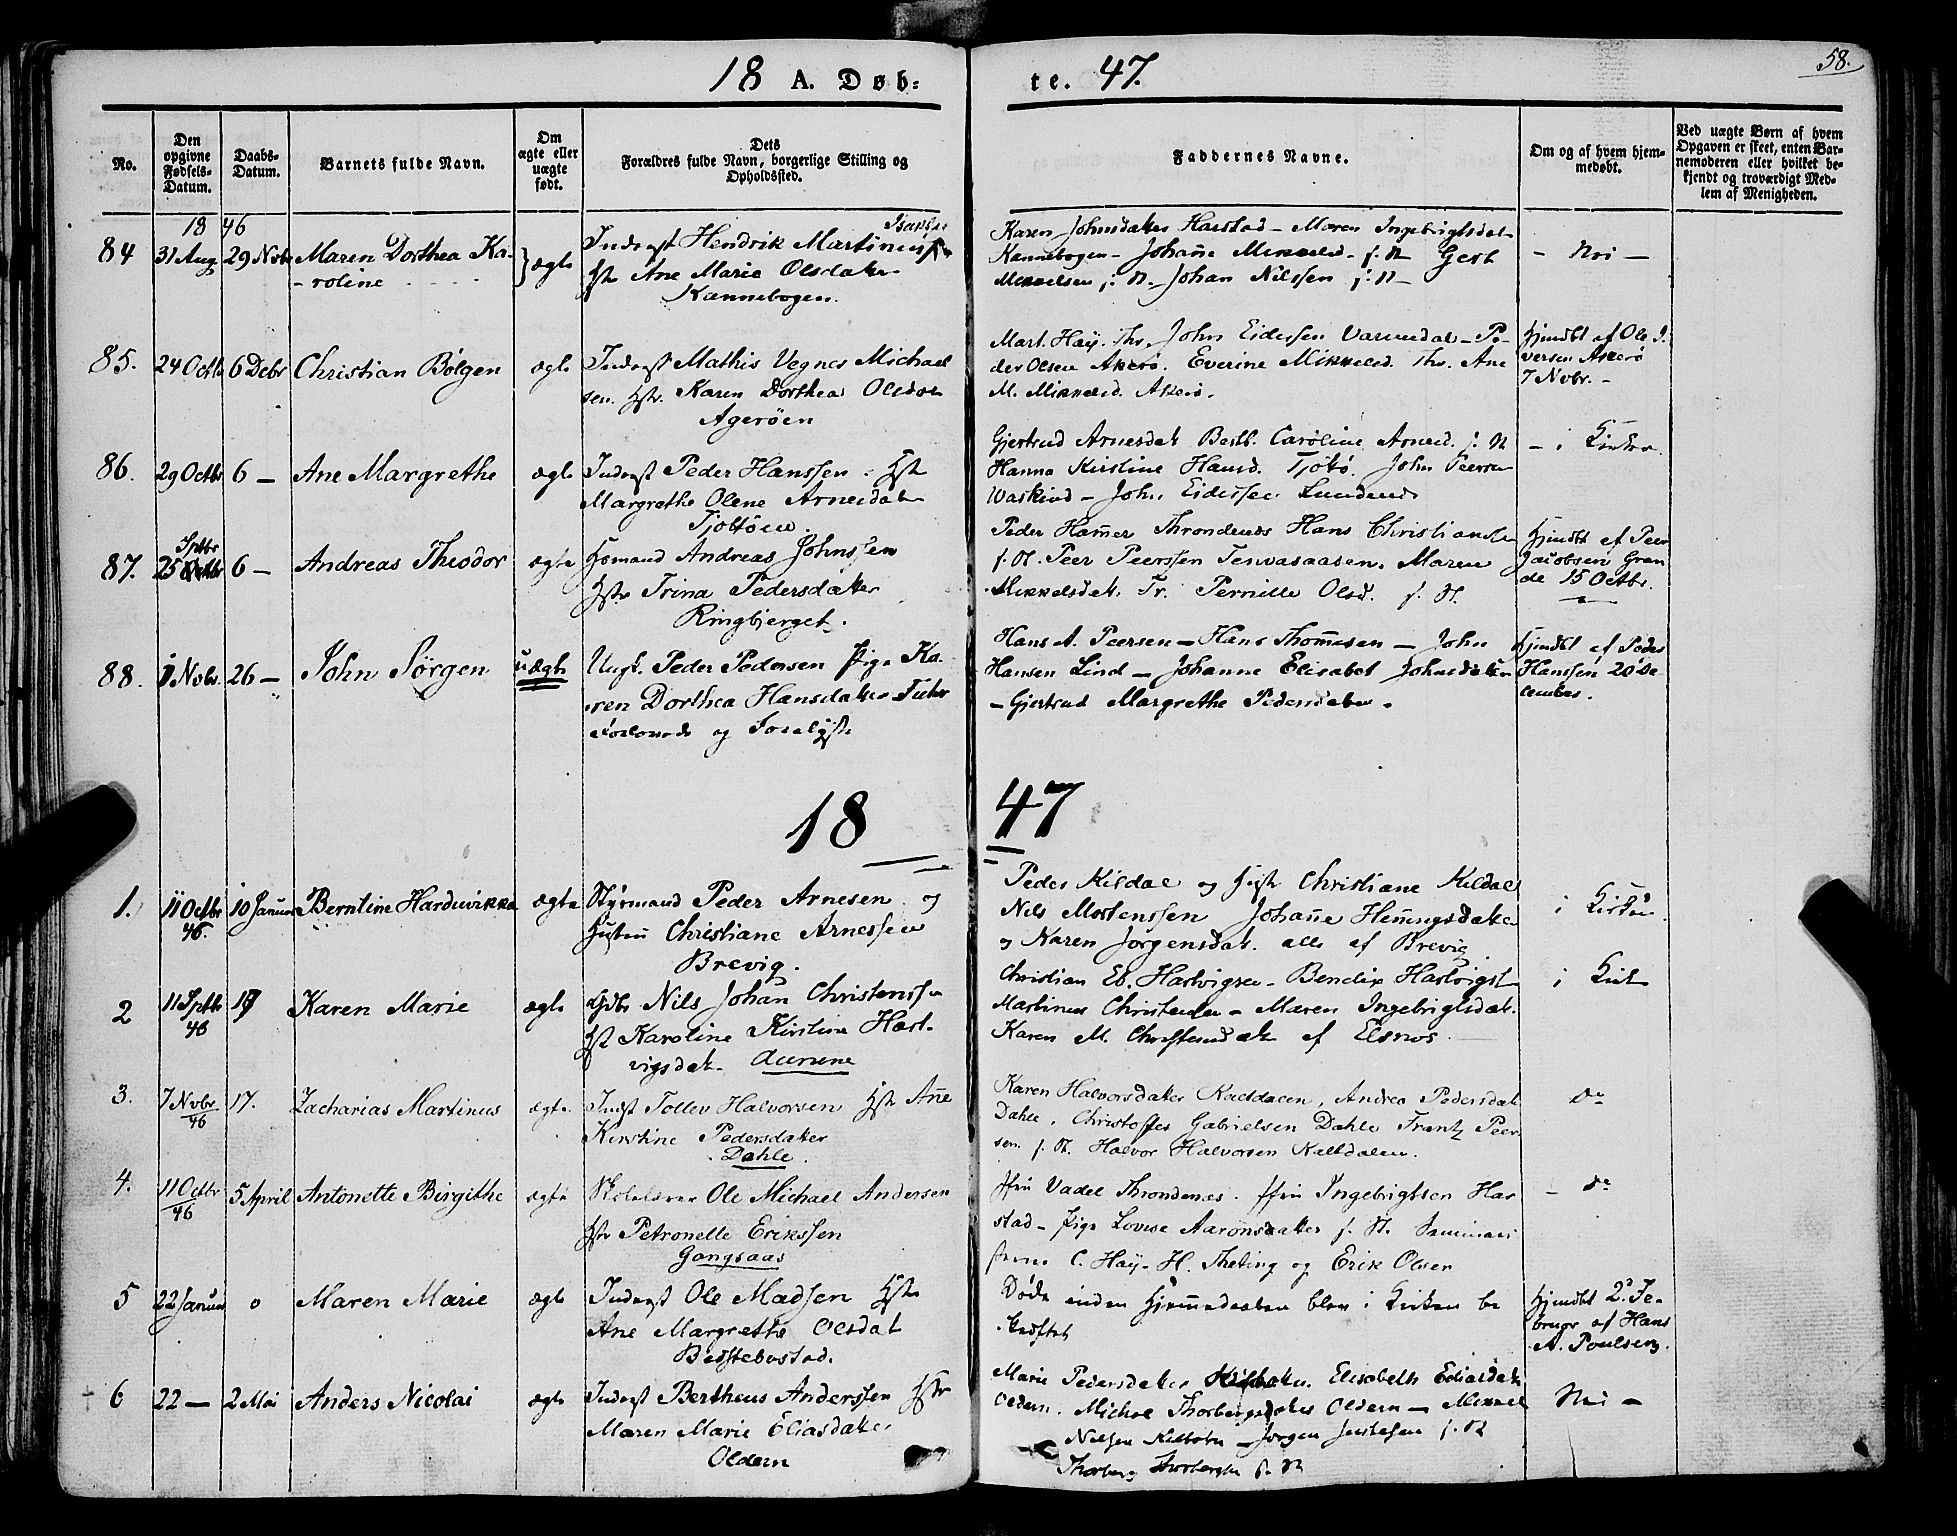 18 A. Døb: te. 47.
58.
No.
Den opgivne Fødsels-Datum.
Daabs-Datum.
Barnets fulde Navn.
Om ægte eller uægte født.
Dets Forældres fulde Navn, borgerlige Stilling og Opholdssted.
Faddernes Navne.
Om og af hvem hjemmedøbt.
Ved uægte Børn af hvem Opgaven er skeet, enten Barnemoderen eller hvilket bekjendt og troværdigt Medlem af Menigheden.
18 46
84 31 Aug 29 Novbr Maren Dorthea Ka-
-roline
ægte
Inderst Hendrik Martinus
Hst Ane Marie Olsdatter
Kannebogen.
Karen Johnsdatter Harstad - Maren Ingebrigtsdat
Kannebogen - Johanne Mikkelsd. f. St Gert
Mikkelsen f. St. Johan Nilssen f. St -
- Nei -
85. 24 Octb 6 Debr Christian Bølgen ægte
Inderst Mathis Vegner Michael
sen. Hstr. Karen Dorthea Olsdat
Agerøen
Mart. Haÿ. Ths. John Eidessen - Pe-
der Olsen Akerø. Everine Mikkelsd. Ths. Ane
M. Mikkelsd. Akerø.
Hjmdbt af Ole I-
versen Akerø
7 Novbr. -
86. 29 Octbr 6 - Ane Margrethe ægte
Inderst Peder Hanssen. Hst
Margrethe Olene Arnesdat
Gjertrud Arnesdat Caroline Arnesd. f. St
Hanna Kirstine Hansd. John Peersen
- John Eidessen
- i Kirken.
87. 25 Sptbr 6 - Andreas Theodor ægte
Hsmand Andreas Johnssen
Hstr Trina Pedersdatter
Ringbjerget.
Peder Hamer Throndenes Hans Christianse
f. St. Peer Peerssen Maren
Mikkelsdat. Tr. Pernille Olsd. f. St.
Hjmdbt af Peer
Jacobsen Gran
de 15 Octbr.
88. 1 Novbr. 26 - John Sørgen uægte
Ungk. Peder Pedersen Pige Ka-
ren Dorthea Hansdatter
og
Hans A. Peersen - Hans Thommesen - John
Hansen Lind - Johanne Elisabet Johnsdatter
- Gjertrud Margrethe Pedersdatter.
Hjmdbt af Peder
Hanssen 20 De
cember.
18 47
1. 11 Octbr 46. 10 Januar Berntine Harduvikka ægte
Styrmand Peder Arnesen og
Hustru Christiane Arnessen
Brevig.
Peder Kildal og Hustr Christiane Kildal
Nils Mortenssen Johanne Hemingsdatter
og Karen Jørgensdat. alle af Brevig
i Kirken.
2 11 Sptbr 46 17 Karen Marie ægte
Gdbr Nils Johan Christenss
Hst Karoline Kirstine Hart-
vigsdat.
Christian Eb. Hartvigsen - Bendix Hartvigs
Martinus Christensen - Maren Ingebrigtsdat.
Karen M. Christensdat af Elsnos
i Kirk
3. 7 Novbr 46 17. Zacharias Martinus ægte.
Indst Tollev Halvorsen Hst Ane
Kirstine Pedersdatter
Dahle.
Karen Halvorsdatter Andrea Pedersdat
Dahle. Christoffer Gabrielsen Dahle Frantz Peer
sen. f. St. Halvor Halvorsen
do
4. 11 Octbr 46 5 April Antonette Birgithe ægte
Skolelærer Ole Michael Andersen
Hstr Petronelle Erikssen
Gangsaas
Ffru Vadel Throndenes. Ffru Ingebrigtsen Har
stad - Pige Lovise Aaronsdatter f. St. Seminari
sterne C. Haÿ - H. Theting og Erik Olsen
- do
5 22 Januar o Maren Marie ægte
Inderst Ole Madsen Hst
Ane Margrethe Olsdat
Døde inden Hjemmedaaben blev i Kirken be
kræftet
Hjmdbt 2. Fe-
bruar af Hans
A. Poulsen.
6 22 - 2 Mai Anders Nicolai ægte
Inderst Bertheus Anderssen Hstr
Maren Marie Eliasdatter
Oldern
Marie Pedersdatter Elisabeth Eliasdat
Oldern. Michael Oldern - Mikkel
Nilsen Kilbotn - Jørgen f. St
f. St
Nei -